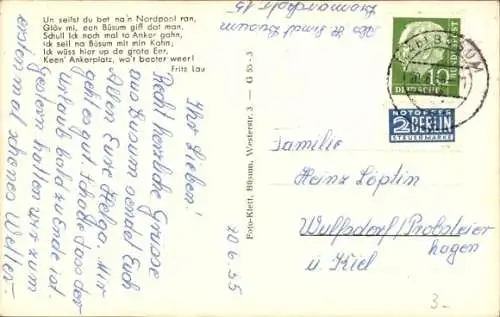 Un seilst du bet na'n Nordpool ran,
Glöv mi, een Büsum gift dat man,
Schull ick noch mal to Anker gahn,
Ick seil na Büsum mit min Kahn;
Ick wüss hier up de grote Eer,
Keen' Ankerplatz, wo't beeter weer!
Fritz Lau
Ihr Lieben!
Recht herzliche Grüsse
aus Büsum sendet Euch
Allen Eure Helga. Mir
geht es gut. Schade das der
Urlaub bald zu ende ist.
Gestern hatten wir zum
ersten mal schönes Wetter
20.6.55
Foto-Klett, Büsum, Westerstr. 3 — G 55-3
Büsum
15
BÜSUM
10
DEUTSCHE
BUNDESPOST
NOTOPFER
2 BERLIN
STEUERMARKE
Familie
Heinz Löptin
Wulfsdorf/Probsteier
hagen
ü. Kiel
3-